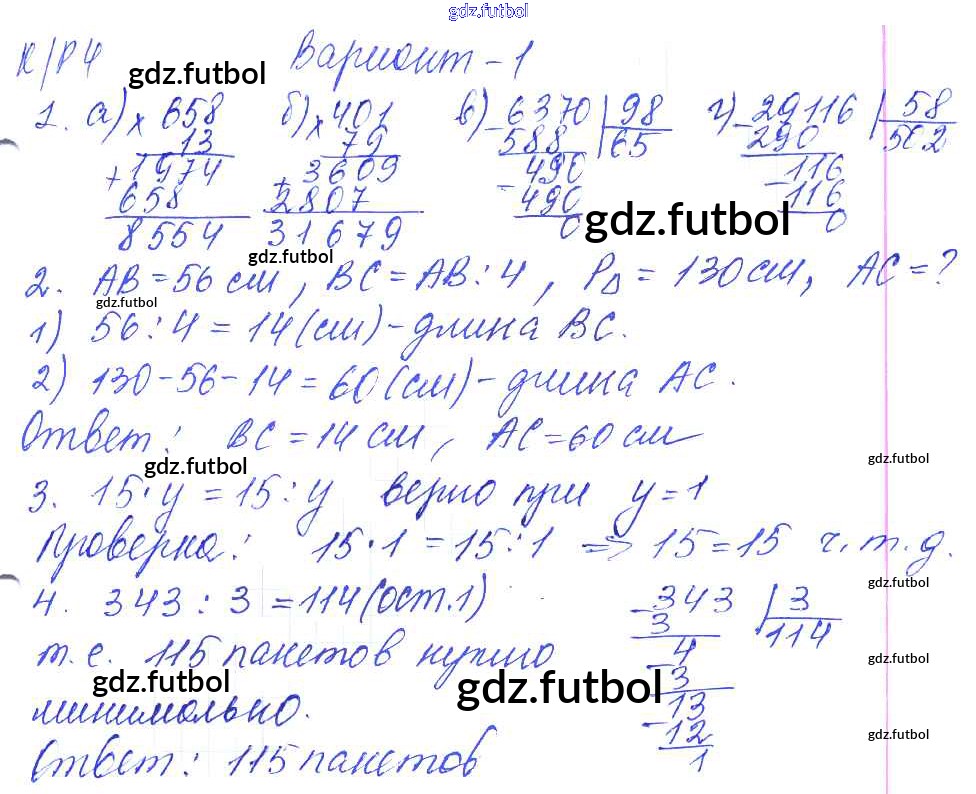 gdz.futbol
К/Р 4 Вариант - 1
gdz.futbol
1. а) × 658 б) × 401 в) - 6370 | 98 г) - 29116 | 58
13 79 588 65 290 502
+ 1974 + 3609 490 - 116
658 2807 - 490 116
8554 31679 0 0
gdz.futbol
gdz.futbol
2. AB = 56 см, BC = AB : 4, P∆ = 130 см, AC = ?
gdz.futbol
1) 56 : 4 = 14 (см) - длина BC.
2) 130 - 56 - 14 = 60 (см) - длина AC.
Ответ: BC = 14 см, AC = 60 см
gdz.futbol
gdz.futbol
3. 15 · y = 15 : y верно при y = 1
Проверка: 15 · 1 = 15 : 1 => 15 = 15 ч. т. д.
gdz.futbol
4. 343 : 3 = 114 (ост. 1) - 343 | 3
3 114
т. е. 115 пакетов нужно - 4
gdz.futbol
gdz.futbol
gdz.futbol
3
минимально. 13
- 12
gdz.futbol
Ответ: 115 пакетов 1